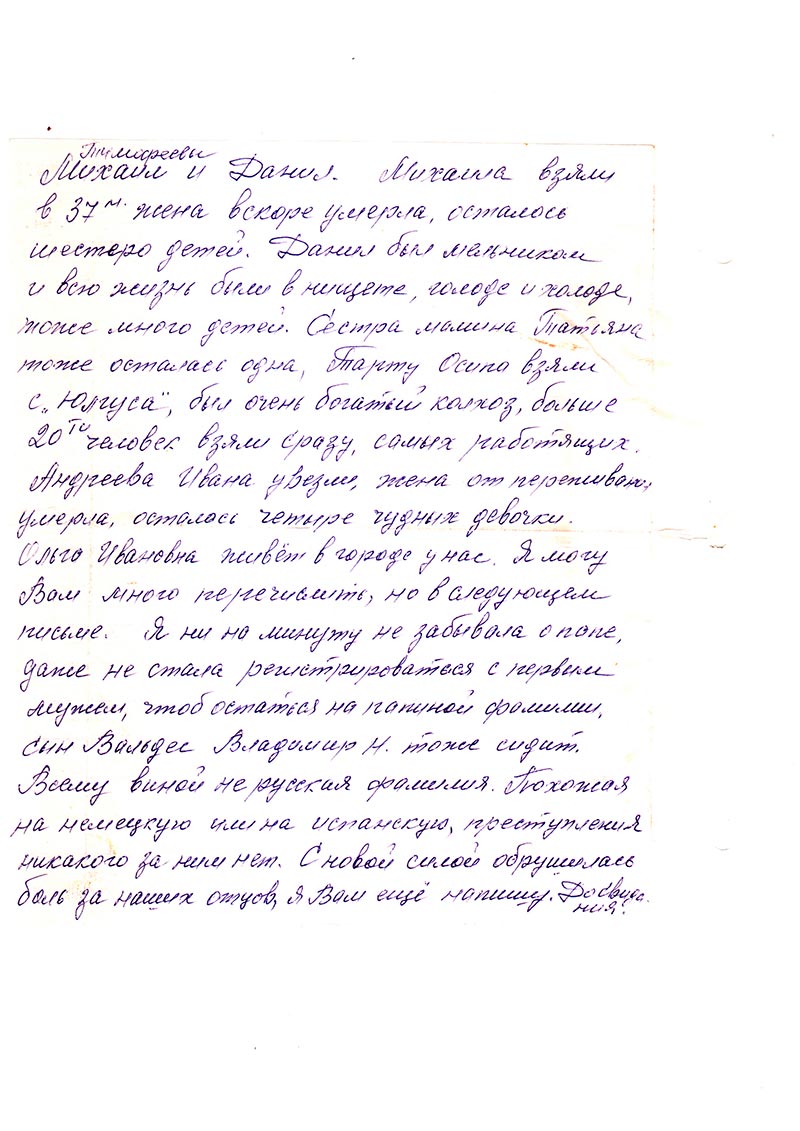 Тимофеевы
Михаил и Данил. Михаила взяли
в 37м. жена вскоре умерла, осталось
шестеро детей. Данил был мельником
и всю жизнь были в нищете, голоде и холоде,
тоже много детей. Сестра мамина Татьяна
тоже осталась одна, Тарту Осипа взяли
с „Юлгуса", был очень богатый колхоз, больше
20ти человек взяли сразу, самых работящих.
Андреева Ивана увезли, жена от переживаний
умерла, осталось четыре чудных девочки.
Ольга Ивановна живёт в городе у нас. Я могу
Вам много перечислить, но в следующем
письме. Я ни на минуту не забывала о папе,
даже не стала регистрироваться с первым
мужем, чтоб остаться на папиной фамилии,
сын Вальдес Владимир Н. тоже сидит.
Всему виной не русская фамилия. Похожая
на немецкую или на испанскую, преступления
никакого за ним нет. С новой силой обрушилась
боль за наших отцов, я Вам ещё напишу. До свида-
ния!